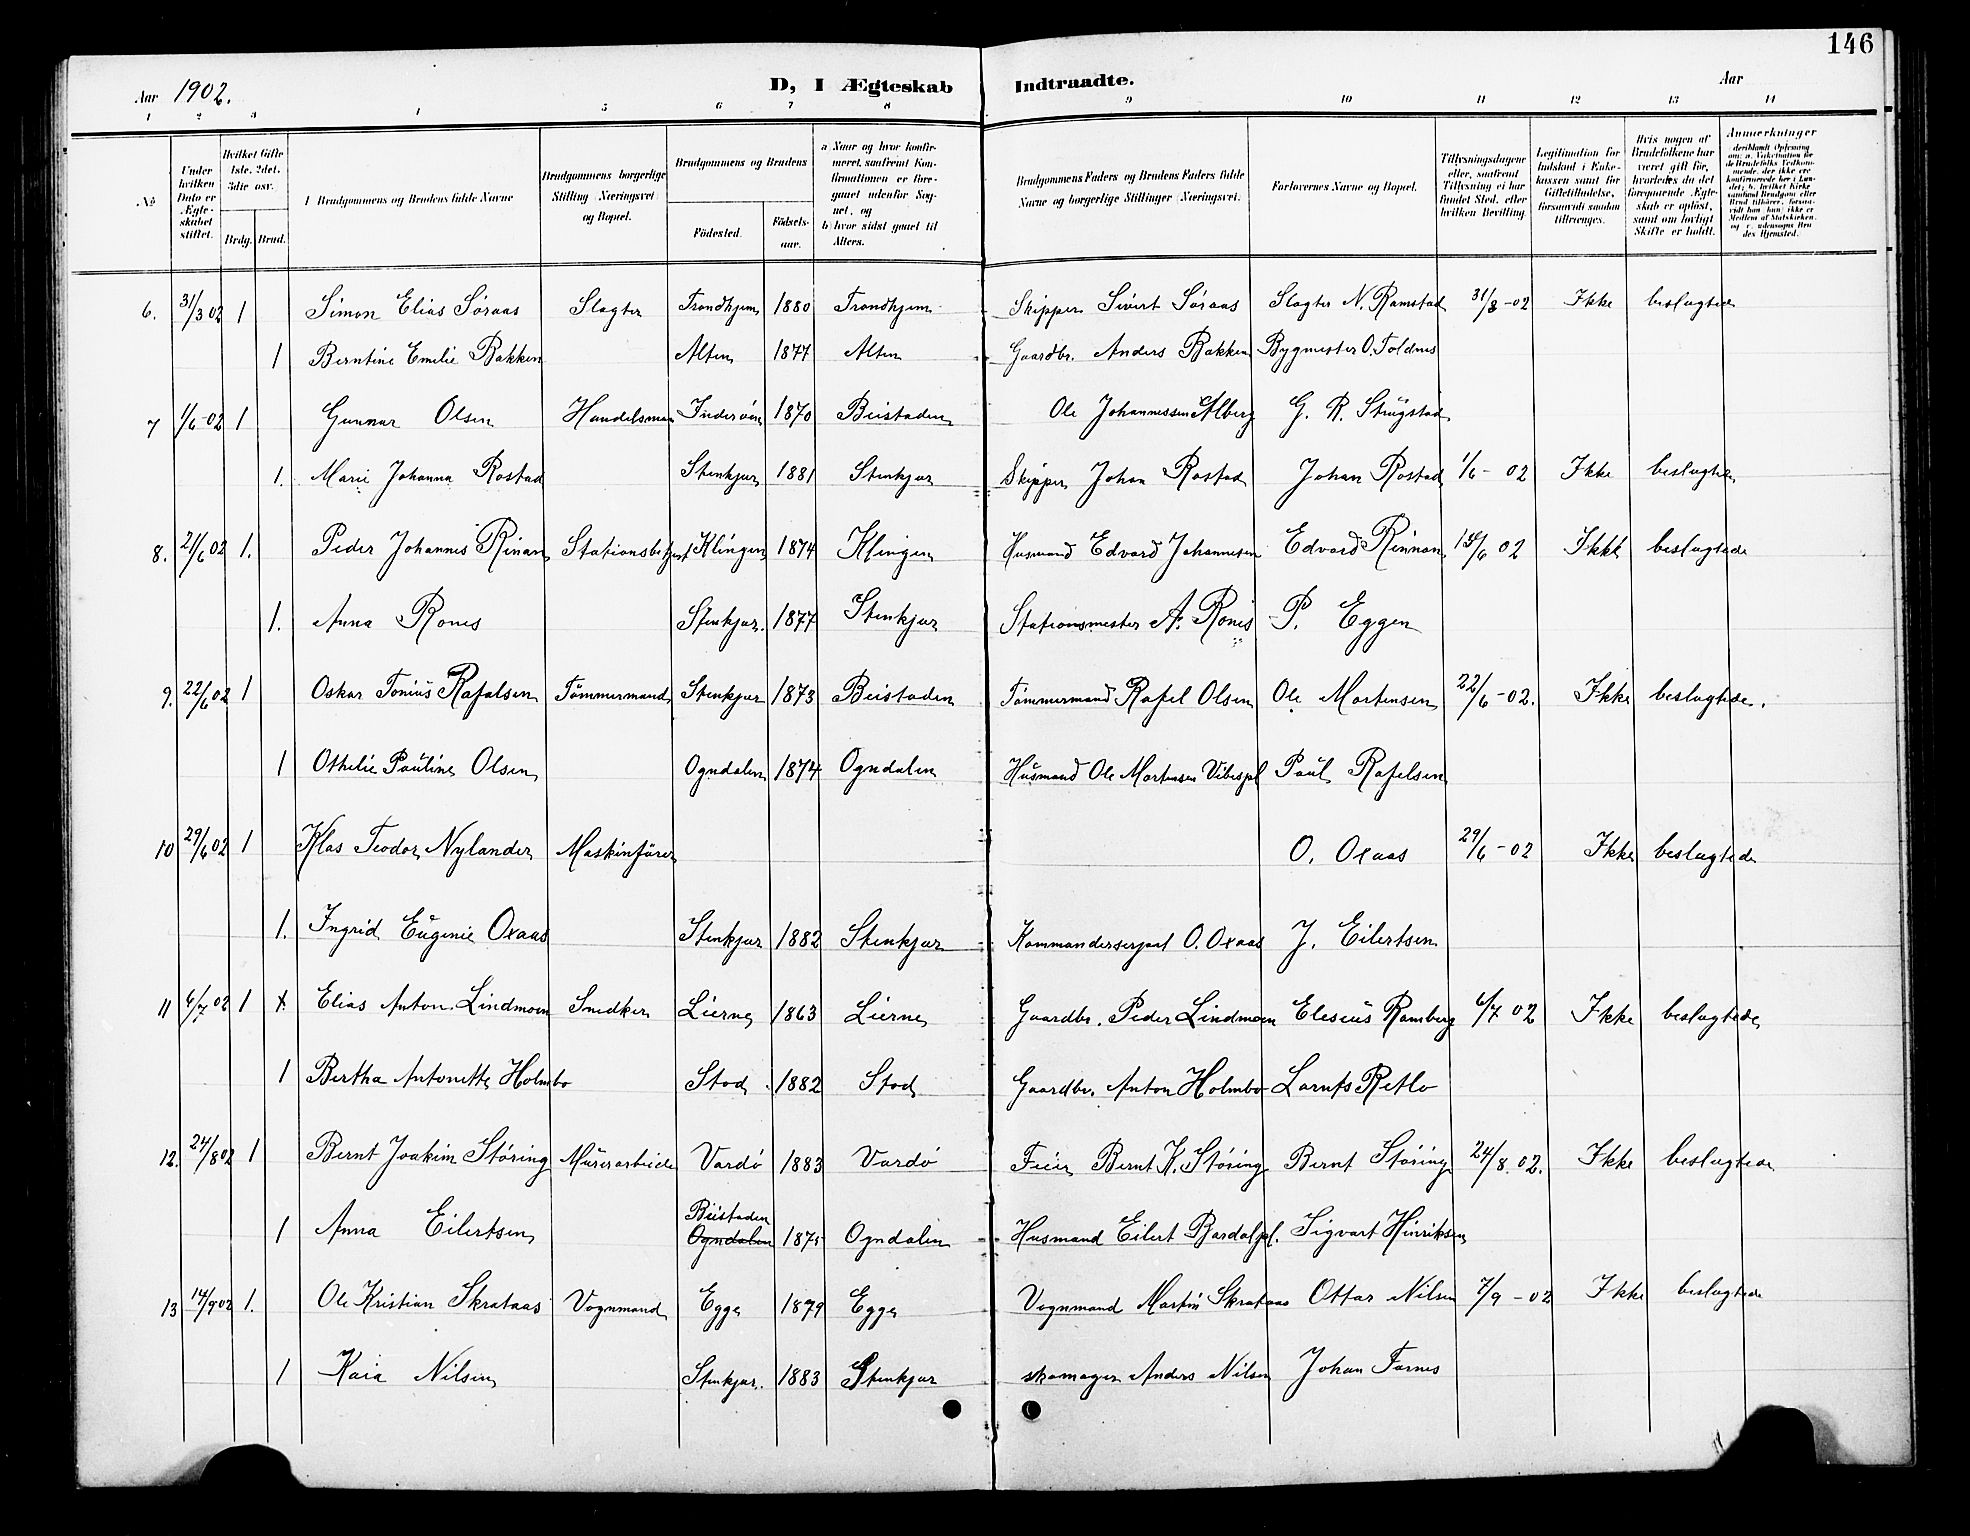 146
Aar 1902. D, I Ægteskab Indtraadte. Aar
1 2 3 4 5 6 7 8 9 10 11 12 13 14
No
Under hvilken Dato er Ægteskabet stiftet.
Hvilket Gifte 1ste, 2det, 3die osv.
Brdg. Brud.
Brudgommens og Brudens fulde Navne
Brudgommens borgerlige Stilling (Næringsvei) og Bopæl.
Brudgommens og Brudens
Födested. Födselsaar.
a Naar og hvor konfirmeret, saafremt Konfirmationen er foregaaet udenfor Sognet, og
b hvor sidst gaaet til Alters.
Brudgommens Faders og Brudens Faders fulde Navne og borgerlige Stillinger (Næringsvei.
Forlovernes Navne og Bopæl.
Tillysningsdagene eller, saafremt Tillysning ei har fundet Sted, efter hvilken Bevilling.
Legitimation for Indskud i Enkekassen samt for Giftetilladelse, forsaavidt saadan tiltrænges.
Hvis nogen af Brudefolkene har været gift för, hvorledes da det foregaaende Ægteskab er oplöst, samt om lovligt Skifte er holdt.
Anmerkninger
6. 31/3 02 1 Simon Elias Søraas Slagter Trondhjem 1880 Trondhjem Skipper Sivert Søraas Slagter N. Ramstad 31/3-02 Ikke beslægtede
1 Berntine Emilie Bakken Alten 1877 Alten Gaardbr. Anders Bakken Bygmester O. Foldnes
7 1/6-02 1 Gunnar Olsen Handelsman Inderøen 1870 Beistaden Ole Johannessen Alberg G. R. Strugstad
1. Marie Johanna Rostad Stenkjær 1881 Stenkjær Skipper Johan Rostad Johan Rostad 1/6-02 Ikke beslægtede
8. 21/6 02 1. Peder Johannes Rinan Klingen 1874 Klingen Husmand Edvard Johannesen Edvard Rinnan 15/6 02 Ikke beslægtede
1. Anna Rønes Stenkjær. 1877 Stenkjær Stationsmester A. Rønes P. Eggen
9. 22/6 02 1 Oskar Tonius Rafalsen Tømmermand Stenkjær 1873 Beistaden Tømmermand Rafel Olsen Ole Mortensen 22/6-02. Ikke beslægtede.
1 Othelie Pauline Olsen Ogndalen 1874 Ogndalen Husmand Ole Mortensen Vibespl Paul Rafelsen
10 29/6 02 1 Klas Teodor Nylander Maskinfører O. Oxaas 29/6-02 Ikke beslægtede
1. Ingrid Eugenie Oxaas Stenkjær 1882 Stenkjær Kommandersersjant O. Oxaas J. Eilertsen
11 6/7 02 1 Elias Anton Lindmoen Snedker Lierne 1863 Lierne Gaardbr. Peder Lindmoen Elesius Ramberg 6/7 02 Ikke beslægtede
1 Bertha Antonette Holmbo Stod 1882 Stod Gaardbr. Anton Holmbo Lornts Retlo
12. 24/8 02 1 Bernt Joakim Støring Murerarbeide Vardø 1883 Vardø Feier Bernt K. Støring Bernt Støring 24/8. 02. Ikke beslægtede
Beistaden
1 Anna Eilertsen Ogndalen 1875 Ogndalen Husmand Eilert Bardalpl. Sigvart Hinriksen
13 14/9 02 1. Ole Kristian Skrataas Vognmand Egge 1879 Egge Vognmand Martin Skrataas Ottar Nilsen 7/9-02 Ikke beslægtede
1 Kaia Nilsen Stenkjær. 1883 Stenkjær skomager Anders Nilsen Johan Farnes